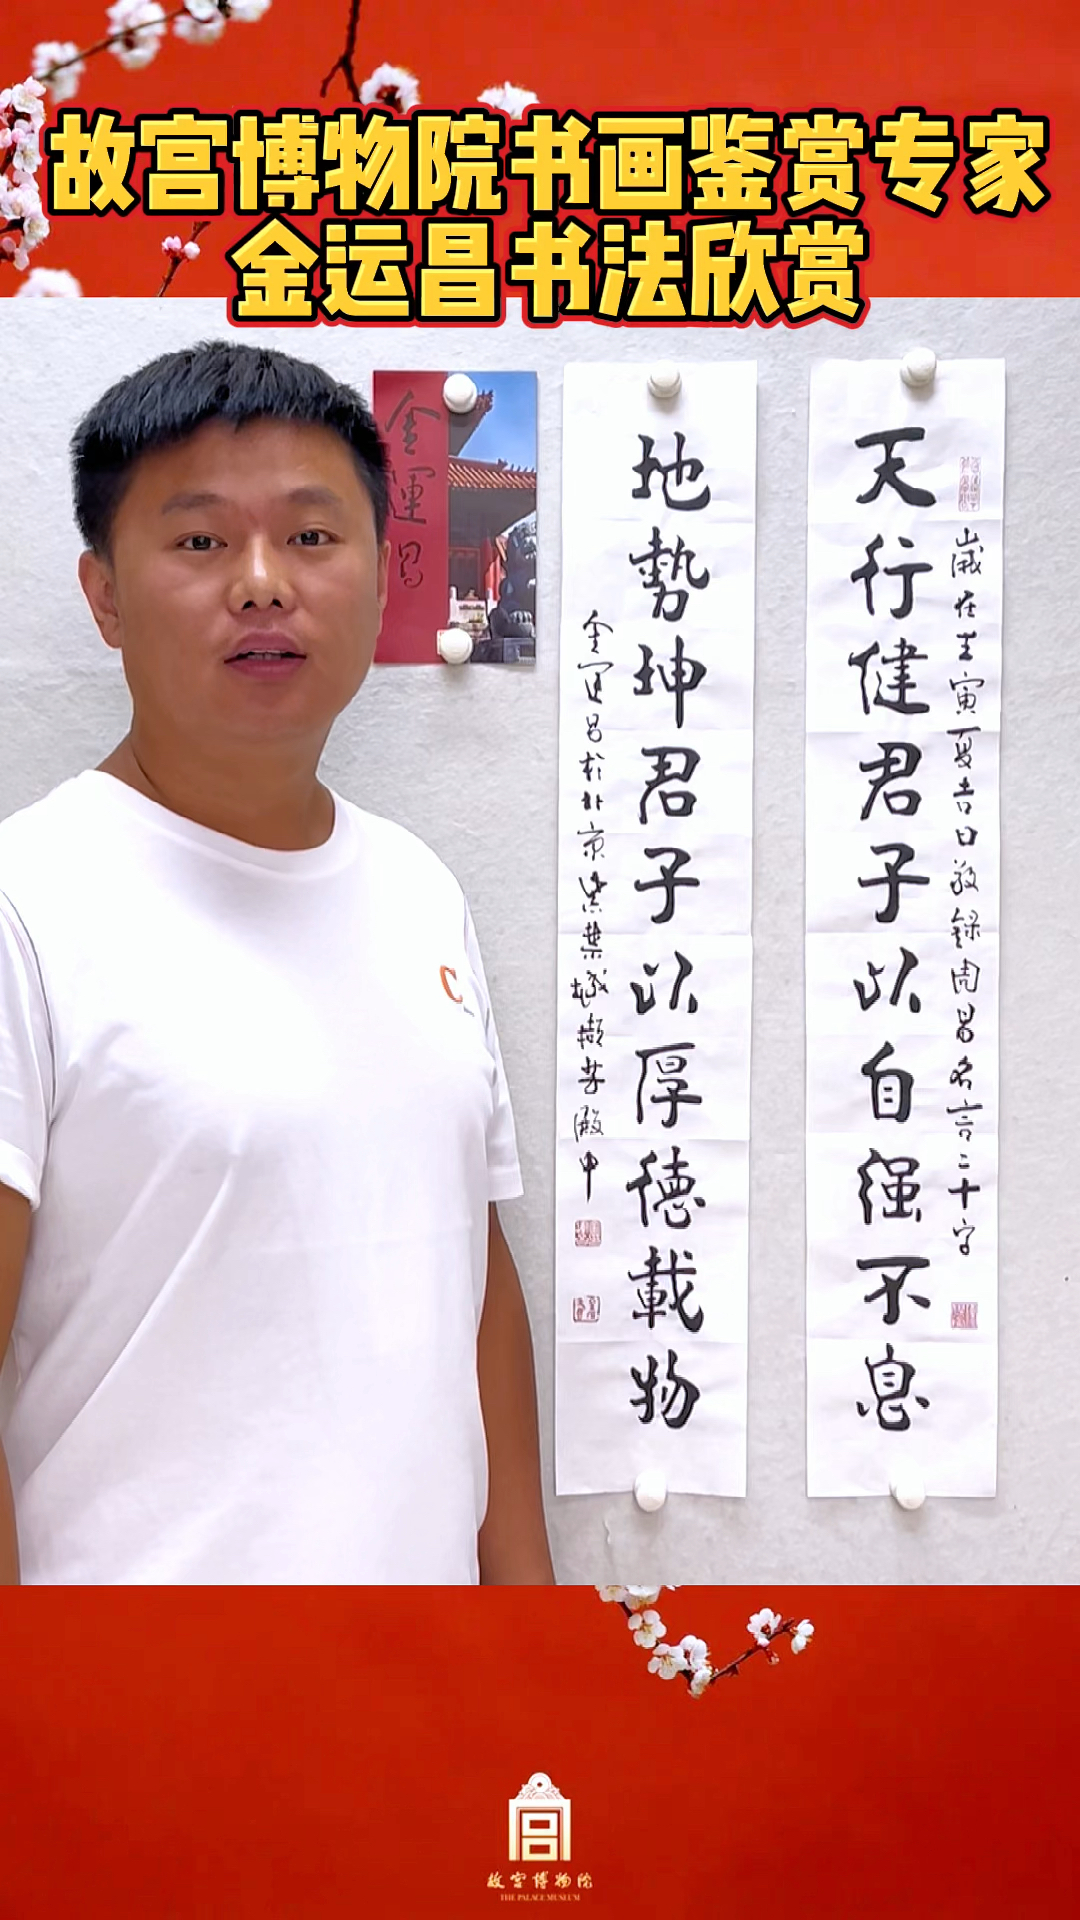 故宫博物院书画鉴赏专家
金运昌书法欣赏
金運昌
天行健君子以自强不息
歲在壬寅夏吉日敬錄周易名言二十字
地勢坤君子以厚德載物
金運昌於北京紫禁城擷芳殿中
C
故宫博物院
THE PALACE MUSEUM